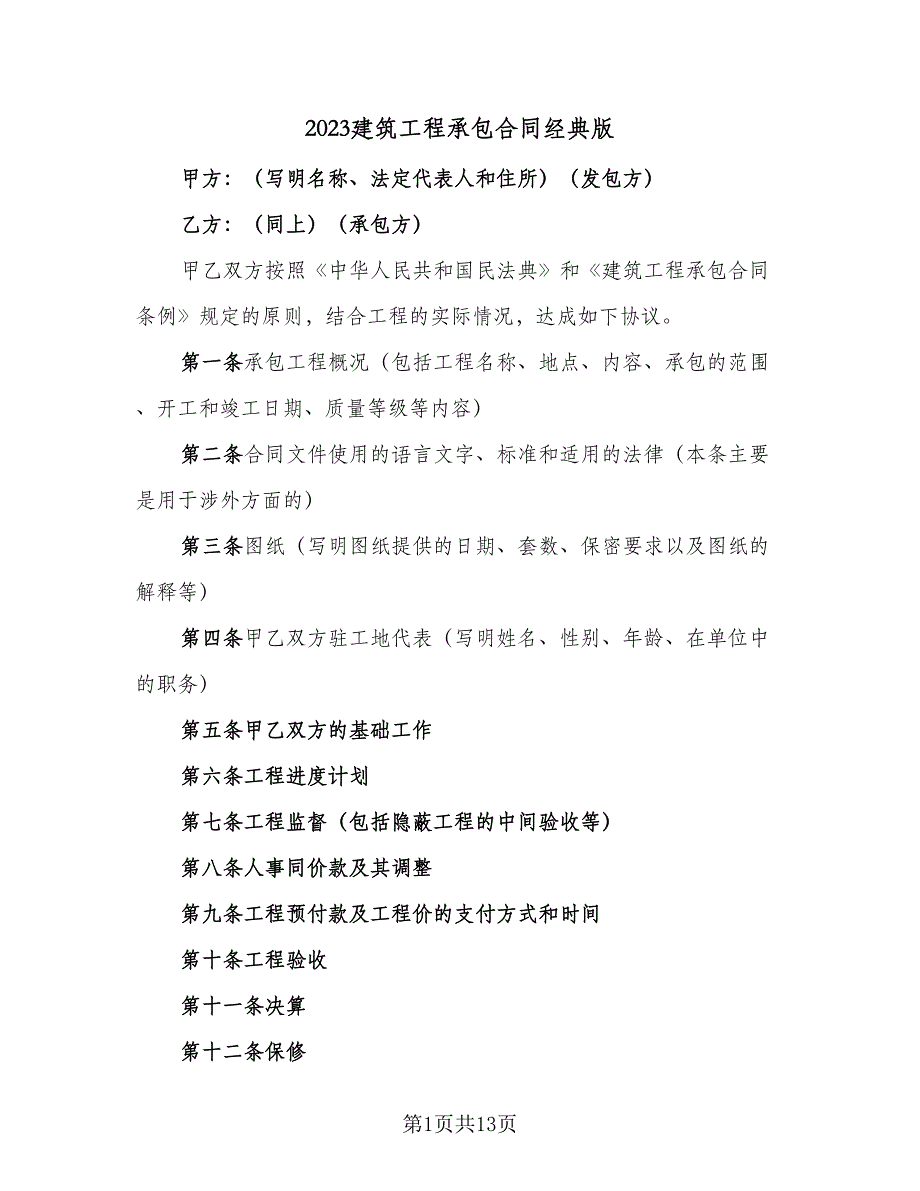 2023建筑工程承包合同经典版
甲方：（写明名称、法定代表人和住所）（发包方）
乙方：（同上）（承包方）
甲乙双方按照《中华人民共和国民法典》和《建筑工程承包合同
条例》规定的原则，结合工程的实际情况，达成如下协议。
第一条承包工程概况（包括工程名称、地点、内容、承包的范围
、开工和竣工日期、质量等级等内容）
第二条合同文件使用的语言文字、标准和适用的法律（本条主要
是用于涉外方面的）
第三条图纸（写明图纸提供的日期、套数、保密要求以及图纸的
解释等）
第四条甲乙双方驻工地代表（写明姓名、性别、年龄、在单位中
的职务）
第五条甲乙双方的基础工作
第六条工程进度计划
第七条工程监督（包括隐蔽工程的中间验收等）
第八条人事同价款及其调整
第九条工程预付款及工程价的支付方式和时间
第十条工程验收
第十一条决算
第十二条保修
第1页共13页